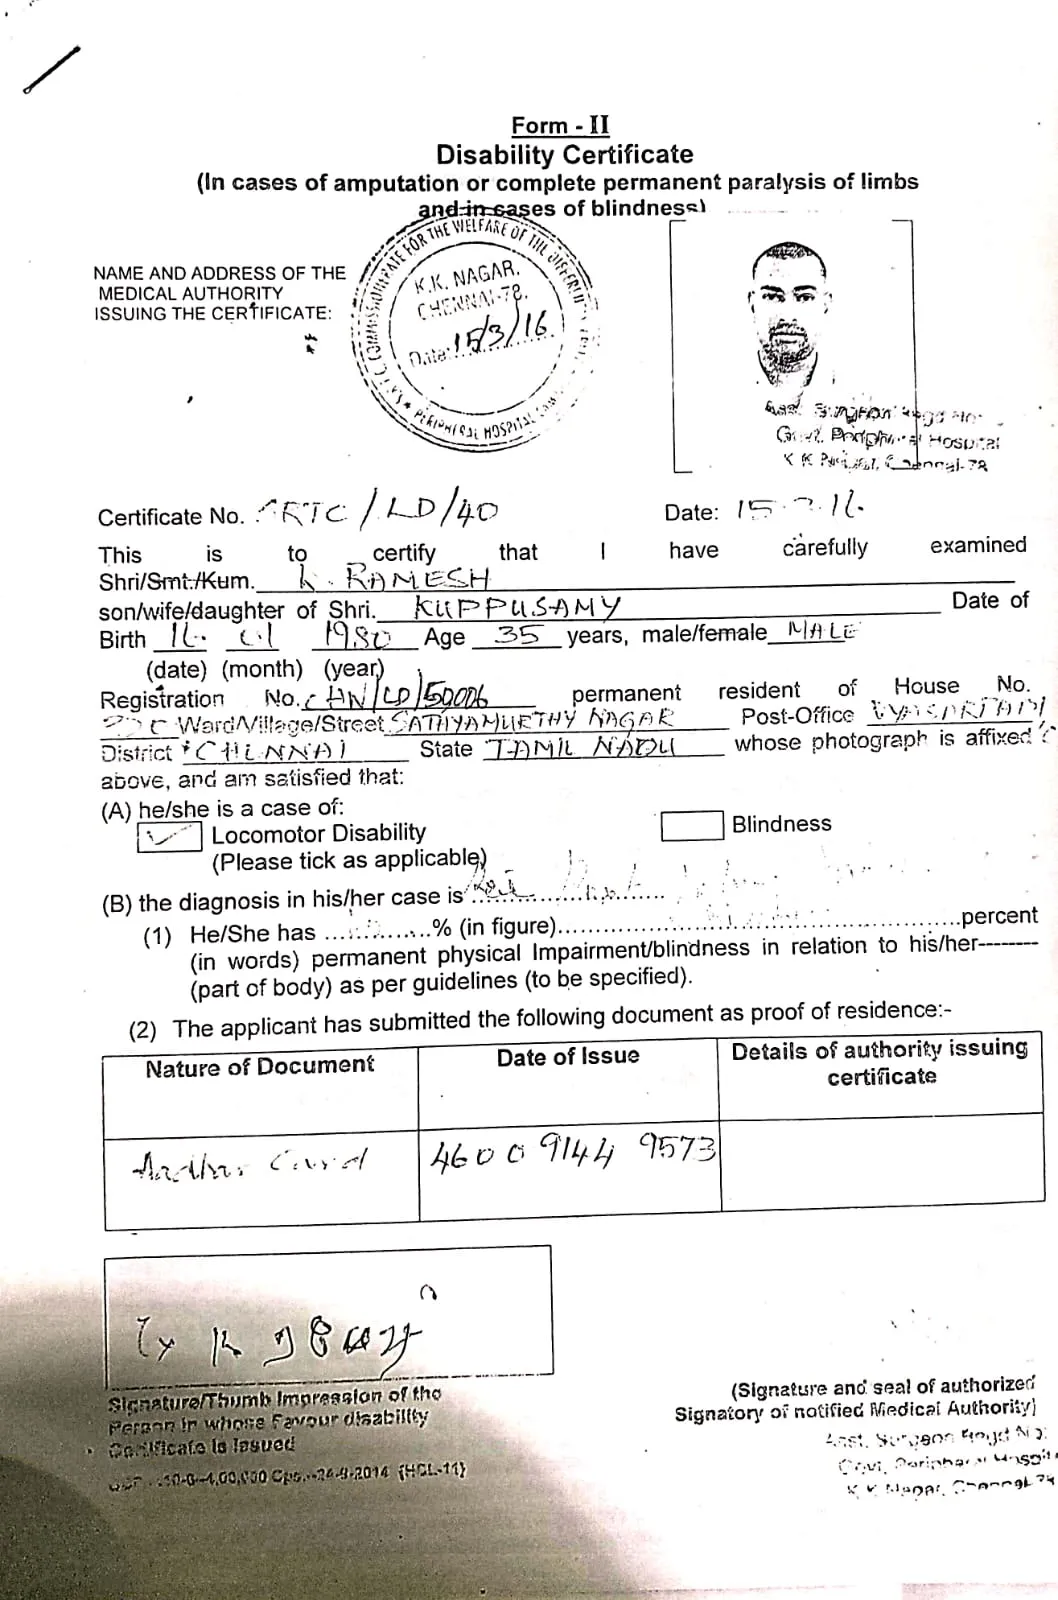 Form - II
Disability Certificate
(In cases of amputation or complete permanent paralysis of limbs
and in cases of blindness)
NAME AND ADDRESS OF THE
MEDICAL AUTHORITY
ISSUING THE CERTIFICATE:
FOR THE WELFARE OF THE
K.K. NAGAR,
CHENNAI-78.
Date: 15/3/16
PERIPHERAL HOSPITAL
Asst. Surgeon
Govt. Peripheral Hospital
K K Nagar, Chennai-78
Certificate No. RTC/LD/40
Date: 15
This is to certify that I have carefully examined
Shri/Smt./Kum. K. RAMESH
son/wife/daughter of Shri. KUPPUSAMY Date of
Birth 1980 Age 35 years, male/female MALE
(date) (month) (year)
Registration No. CHN/LD/50006 permanent resident of House No.
Ward/Village/Street SATHYAMURTHY NAGAR Post-Office
District CHENNAI State TAMIL NADU whose photograph is affixed
above, and am satisfied that:
(A) he/she is a case of:
Locomotor Disability
Blindness
(Please tick as applicable)
(B) the diagnosis in his/her case is
(1) He/She has % (in figure) percent
(in words) permanent physical Impairment/blindness in relation to his/her--------
(part of body) as per guidelines (to be specified).
(2) The applicant has submitted the following document as proof of residence:-
Nature of Document
Date of Issue
Details of authority issuing
certificate
Aadhar Card
4600 9144 9573
Signature/Thumb Impression of the
Person in whose Favour disability
Certificate is Issued
4,00,000 Cps.-24-9-2014 {HCL-11}
(Signature and seal of authorized
Signatory of notified Medical Authority)
Asst. Surgeon
Govt. Peripheral Hospital
K K Nagar, Chennai-78